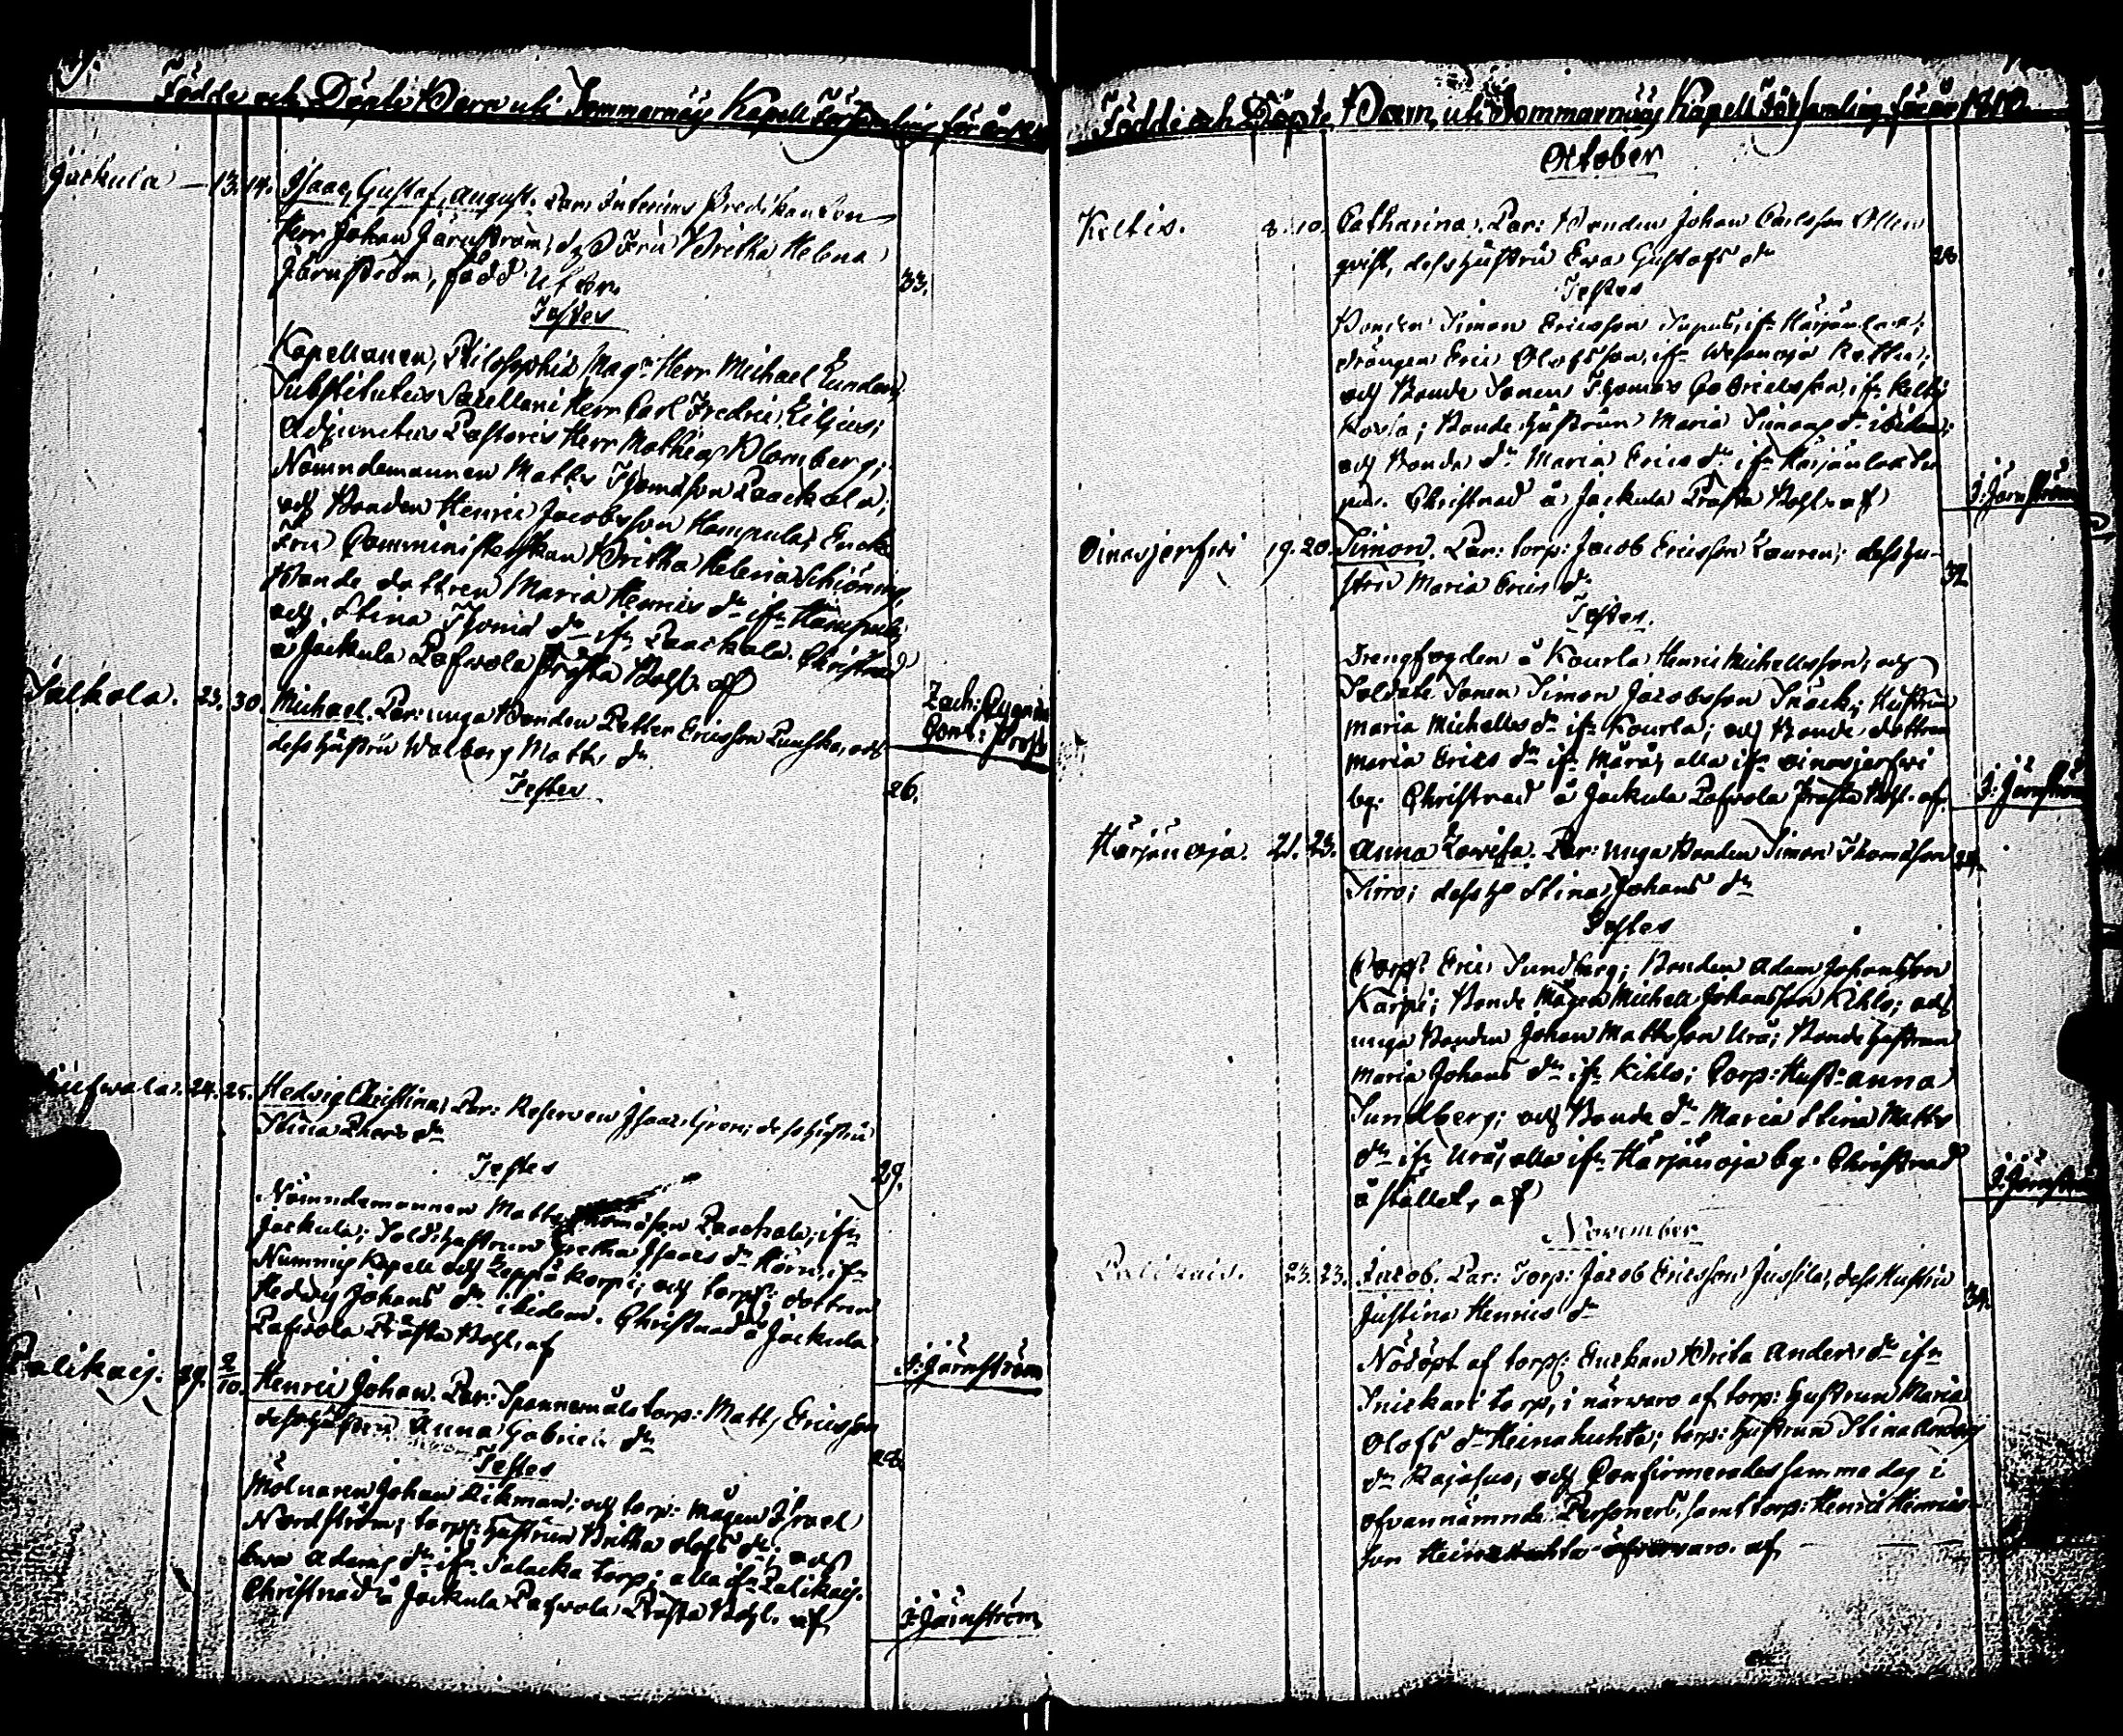 Födde och Döpte Barn uti Sommarnäs Kapell Församling för år
Jackula 13. 14. Isaac, Gustaf, August. Par: Interims Predikanten
Herr Johan Järnström, dess Fru Britha Helena
Järnström, född
33.
Testes
Kapellanen, Philosophiæ Mag: Herr Michael
Substitutus Sacellani Herr Carl Fredric Liljus;
Adjunctus Pastoris Herr Mathias Blomberg;
Nämndemannen Matts Thomasson Paackala;
och Bonden Henric Jacobsson Hampula; Encke
Fru Comministerskan Britha Helena Schöning,
Bonde dottren Maria Henrics dr ifn
och Stina Thomæ dr ifn Paackala. Christnad
å Jackula Pafwola Prästa Bohl. af
Zach: Cygnæus
Cont: Prost
Salkola. 23. 30. Michael. Par: unga Bonden Petter Ericsson, och
dess hustru Walborg Matts dr
26.
Testes
24. 25. Hedvig Christina, Par: Reserven Isaac Gren; dess hustru
Stina dr
29.
Testes
Nämndemannen Matts Thomasson Paackala, ifn
Jackula; Sold: hustrun Gretha Isaacs dr ifn
Nummis Kapell och Leppäkorpi; och torp: dottren
Hedvig Johans dr ibidem. Christnad å Jackula
Pafwola Prästa Bohl. af
J: Järnström
Palikais. 29. 2/10. Henric Johan. Par: Spannemåls torp: Matts Ericsson
dess hustru Anna Gabriels dr
28.
Testes
Mölnaren Johan Rikman; och torp: mågen Israel
Nordström; torp: hustrun Britha Olofs dr; och
Ewa Adams dr ifn Salacka torp; alla ifn Palikais.
Christnad å Jackula Pafwola Prästa Bohl. af
J: Järnström
Födde och Döpte Barn, uti Sommarnäs Kapell Församling för år 1810
October
Keltis. 8. 10. Catharina. Par: Bonden Johan Carlsson Ollen
qvist, dess hustru Ewa Gustafs dr
28
Testes
Bonden Simon Ericsson, ifn
drängen Eric Olofsson, ifn
och Bonde Sonen Thomas Gabrielsson, ifn Keltis
; Bonde hustrun Maria Simons dr ibidem;
och Bonde dr Maria Erics dr ifn
Christnad å Jackula Prästa Bohl. af
J: Järnström
Oinasjerfwi 19. 20. Simon. Par: torp: Jacob Ericsson Lauren; dess hu-
stru Maria Erics dr
32
Testes.
Drengfogden å Kourla Henric Michelsson, och
Soldate Sonen Simon Jacobsson Snäck; Hustrun
Maria Michels dr ifn Kourla; och Bonde dottren
Maria Erics dr ifn Märä, alla ifn Oinasjerfwi
by. Christnad å Jackula Pafwola Prästa Bohl. af.
J: Järnström
Härjänoja. 21. 23. Anna Lovisa. Par: unga Bonden Simon Thomasson
Sirro; dess h: Stina Johans dr
Testes
Corp: Eric Sundberg; Bonden Adam Johansson
Karpi; Bonde Mågen Michell Johansson Kihlo; och
unga Bonden Johan Mattsson Urå; Bonde hustrun
Maria Johans dr ifn Kihlo; Corp: Hust: Anna
Sundberg; och Bonde dr Maria Stina Matts
dr ifn Urå, alla ifn Härjänoja by. Christnad
å stället, af
J: Järnström
November
Palikais. 23. 23. Jacob. Par: Torp: Jacob Ericsson Jussila, dess Hustru
Justina Henrics dr
34.
Nödöpt af torp: Enckan Brita Anders dr ifn
Snickari torp, i närwaro af torp: hustrun Maria
Olofs dr Heinahuhta; torp: hustrun Stina Anders
dr Rajasuo, och Confirmerades samma dag i
ofvannämnde Personers, samt torp: Henric Henrics
son Heinahuhta af